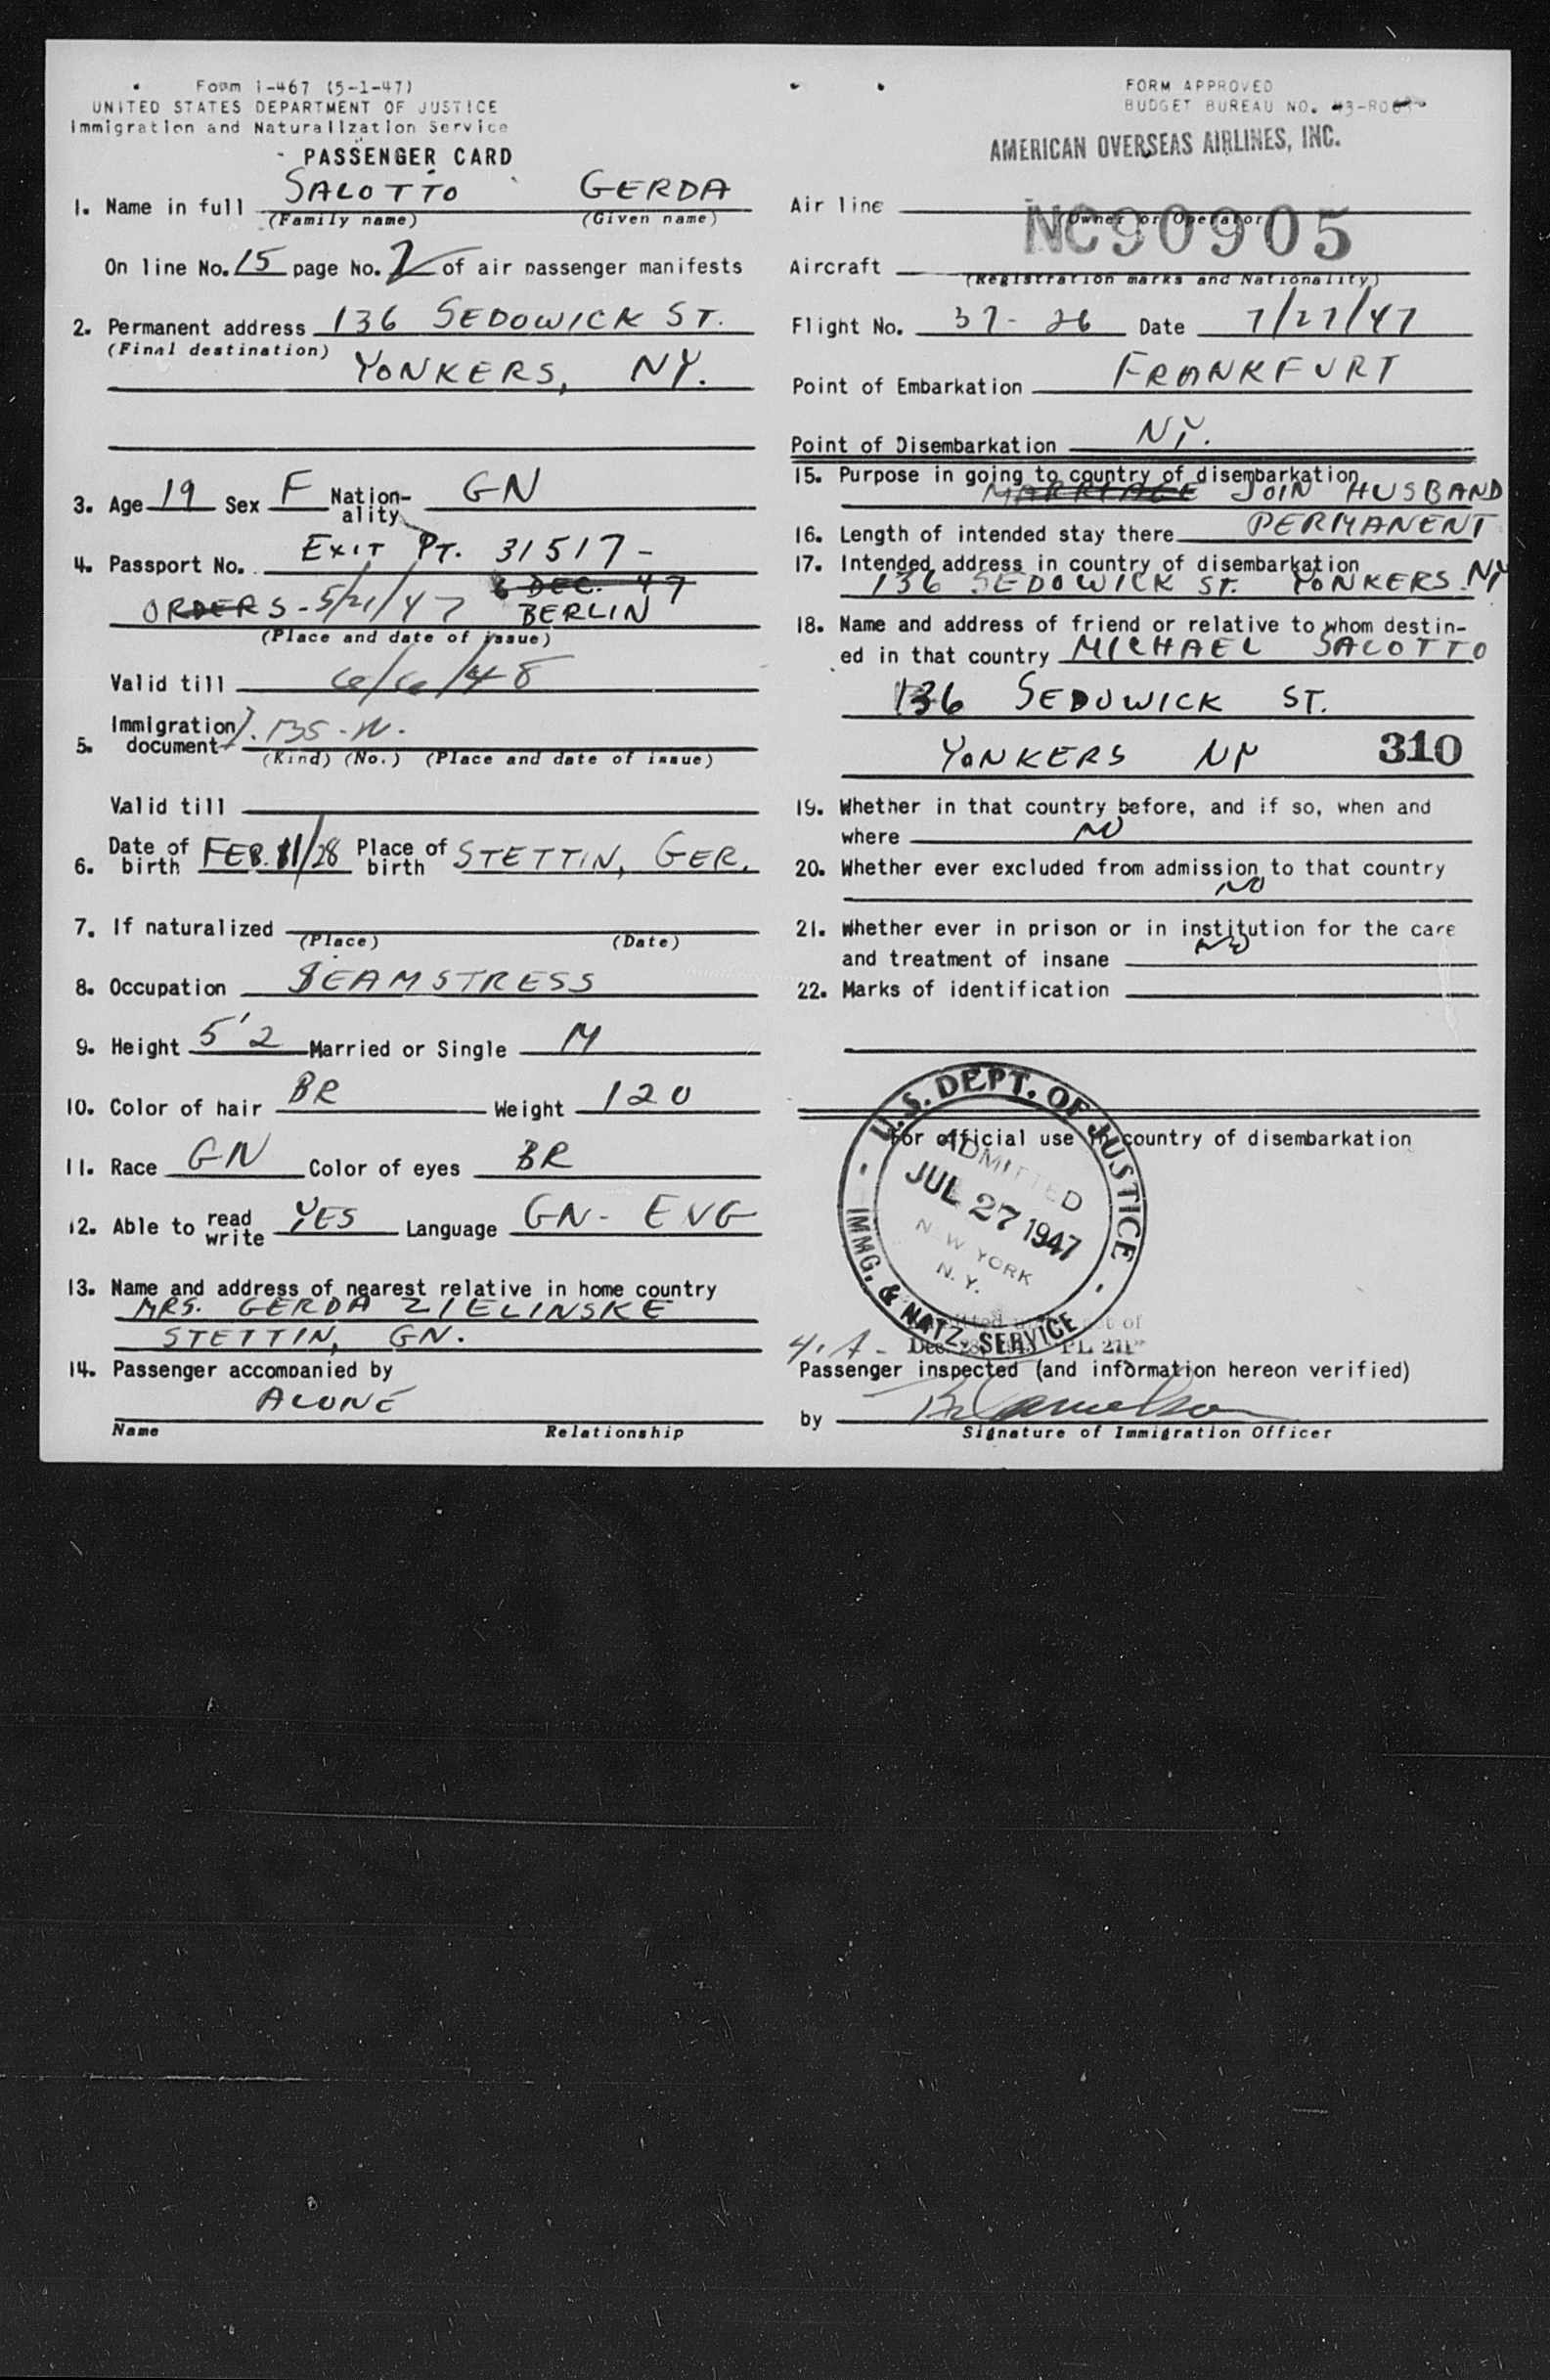 Form I-467 (5-1-47)
UNITED STATES DEPARTMENT OF JUSTICE
Immigration and Naturalization Service
PASSENGER CARD
1. Name in full SALOTTO GERDA
(Family name) (Given name)
On line No. 15 page No. 2 of air passenger manifests
2. Permanent address 136 SEDOWICK ST.
(Final destination)
YONKERS, NY.
3. Age 19 Sex F Nation-ality GN
4. Passport No. EXIT PT. 31517-
6 DEC. 47
ORDERS-5/21/47 BERLIN
(Place and date of issue)
Valid till 6/6/48
5. Immigration document
(Kind) (No.) (Place and date of issue)
Valid till
6. Date of birth FEB. 11/28 Place of birth STETTIN, GER.
7. If naturalized
(Place) (Date)
8. Occupation SEAMSTRESS
9. Height 5'2 Married or Single M
10. Color of hair BR Weight 120
11. Race GN Color of eyes BR
12. Able to read write YES Language GN- ENG
13. Name and address of nearest relative in home country
MRS. GERDA ZIELINSKE
STETTIN, GN.
14. Passenger accompanied by
ALONE
Name Relationship
FORM APPROVED
BUDGET BUREAU NO.
AMERICAN OVERSEAS AIRLINES, INC.
Air line
(Owner or Operator)
NC90905
Aircraft
(Registration marks and Nationality)
Flight No. 37-26 Date 7/27/47
Point of Embarkation FRANKFURT
Point of Disembarkation NY.
15. Purpose in going to country of disembarkation
MARRIAGE JOIN HUSBAND
16. Length of intended stay there PERMANENT
17. Intended address in country of disembarkation
136 SEDOWICK ST. YONKERS NY
18. Name and address of friend or relative to whom destin-
ed in that country MICHAEL SALOTTO
136 SEDOWICK ST.
YONKERS NY 310
19. Whether in that country before, and if so, when and
where NO
20. Whether ever excluded from admission to that country
NO
21. Whether ever in prison or in institution for the care
and treatment of insane NO
22. Marks of identification
For official use in country of disembarkation
U.S. DEPT. OF JUSTICE
ADMITTED
JUL 27 1947
NEW YORK
N.Y.
IMMG. & NATZ. SERVICE
Passenger inspected (and information hereon verified)
by
Signature of Immigration Officer